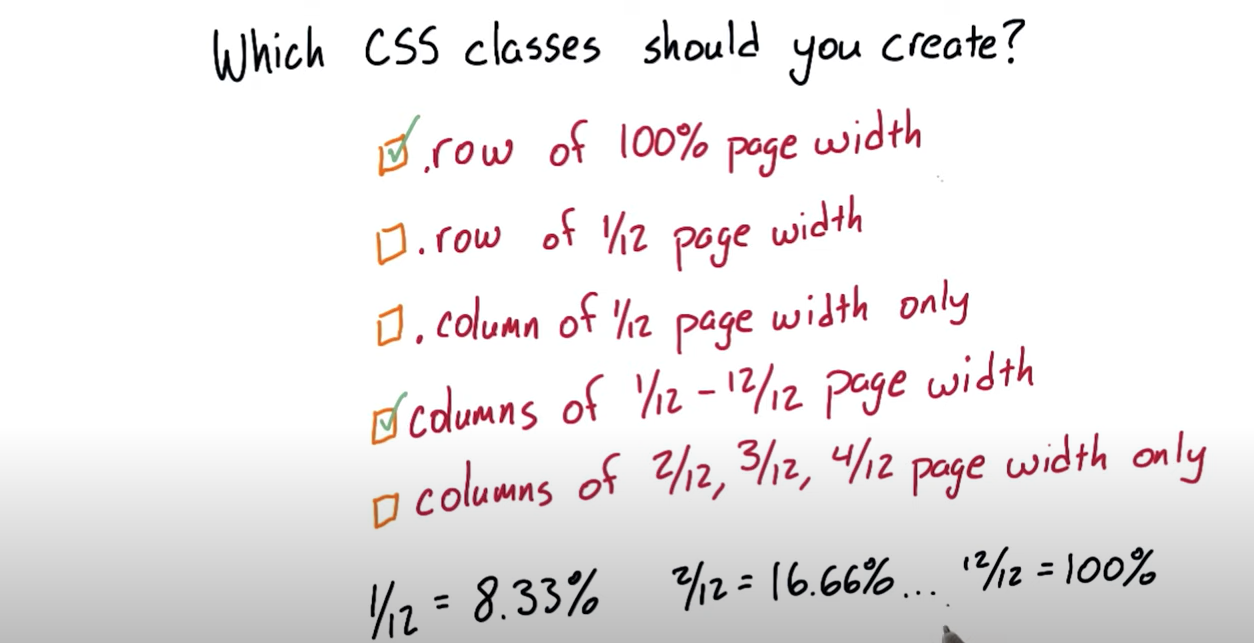 Which CSS classes should you create?
.row of 100% page width
.row of 1/12 page width
.column of 1/12 page width only
columns of 1/12 - 12/12 page width
columns of 2/12, 3/12, 4/12 page width only
1/12 = 8.33% 2/12 = 16.66%... 12/12 = 100%